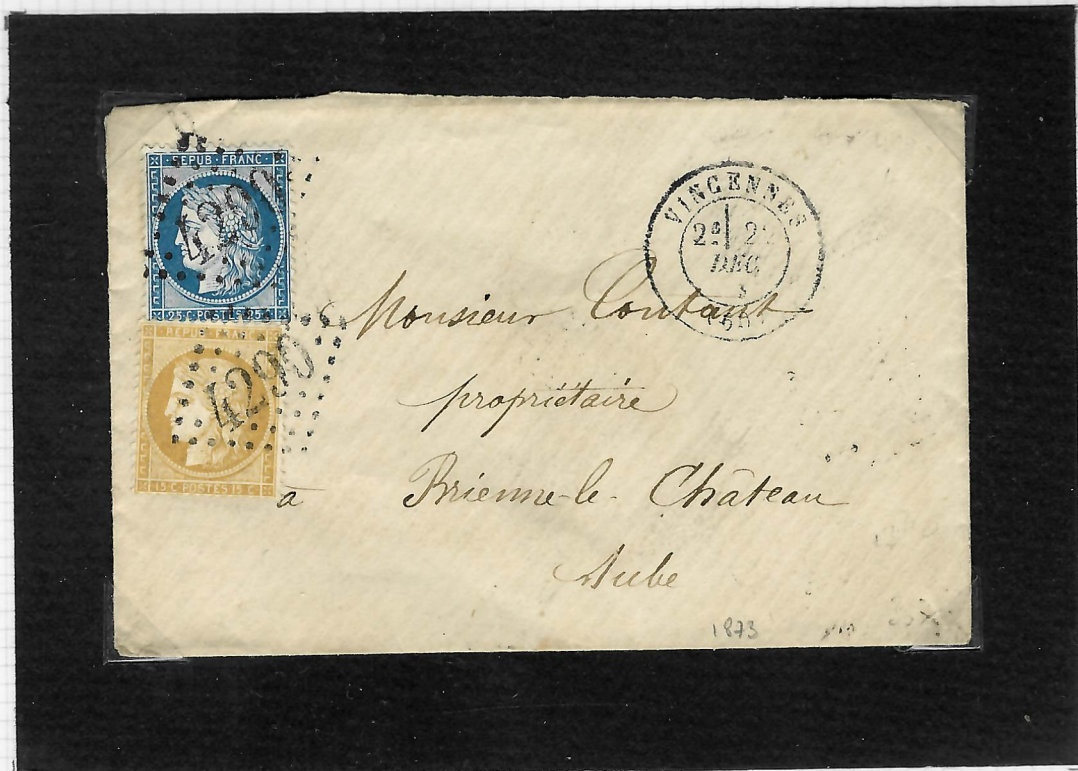 REPUB·FRANC
4290
25 C·POSTES·25 C
REPUB·FRANC
4290
15 C·POSTES·15 C
VINCENNES
2ᵉ
DEC
Monsieur Coutant
propriétaire
à Brienne-le-Château
Aube
1873